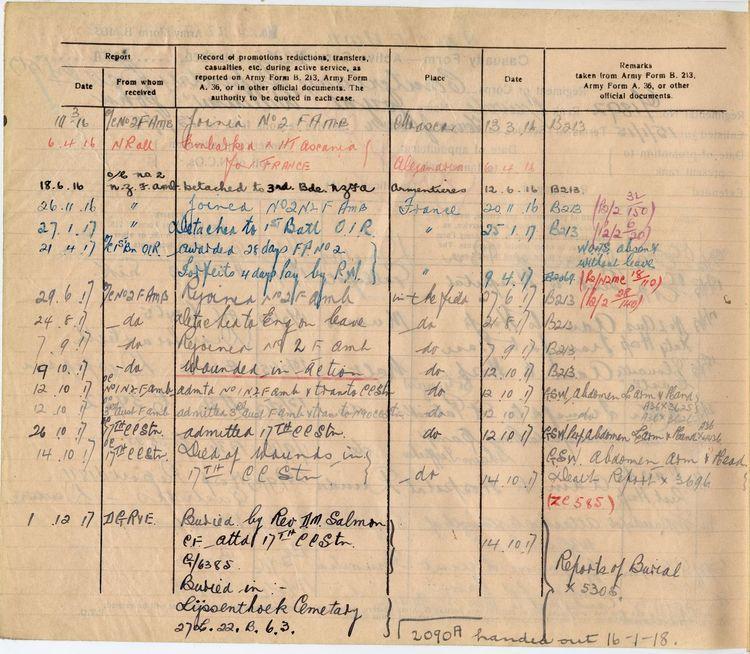 Report
Record of promotions reductions, transfers,
casualties, etc. during active service, as
reported on Army Form B. 213, Army Form
A. 36, or in other official documents. The
authority to be quoted in each case.
Place
Date
Remarks
taken from Army Form B. 213,
Army Form A. 36, or other
official documents.
Date
From whom
received
No 2 F AMB Joined No 2 F AMB Moascar 13 3.16 B213
6.4 16 Embarked HT Ascania
for FRANCE Alexandria 6.4 16
o/c no. 2
18.6.16 n.z.F. amb detached to 3rd. Bde. NZFA Armentieres 12.6.16 B213.
26.11.16 " Joined No 2 NZ F Amb France 20 11 16 B213 (12/2 31/150)
27.1.17 " Detached to 1st Batn O I R " 25 1.17 B213 (12/2 6/20)
21.4.17 1st Bn OIR awarded 28 days F P No 2 absent
without leave
Forfeits 4 days pay by R.W. " 9 4.17 18/110
29.6.17 No 2 F AMB Rejoined No 2 F amb in the field 27 6 17 B213 (12/2 28/140)
24.8.17 _do Detached to Eng on leave _do 24 8 17 B213
7.9.17 _do Rejoined No 2 F amb _do 7 9 17 B213
19 10.17 _do Wounded in Action _do 12.10.17 B213
12 10.17 No 1 NZ F amb admtd No 1 NZ F amb & trans to CC Stn do 12 10 17 GSW Abdomen L arm & Hand
A36
12 10 17 3rd Aust F amb admitted 3rd Aust F amb & trans to do 12 10 17
26 10.17 17TH CC Stn. admitted 17TH CC Stn. do 12 10 17 GSW Abdomen L arm & Hand A36
14.10.17 17TH CC Stn. Died of Wounds in
17TH CC Stn _do 14.10.17 GSW. Abdomen Arm & Head
Death Report x 3696
(ZC 585)
1 .12 17 DGRVE. Buried by Rev D.M. Salmon
CF attd 17TH CC Stn.
G/6385. 14.10.17
Buried in :-
Reports of Burial
x 5305
Lijssenthoek Cemetary
27 L. 22. B. 6.3.
2090A handed out 16-1-18.